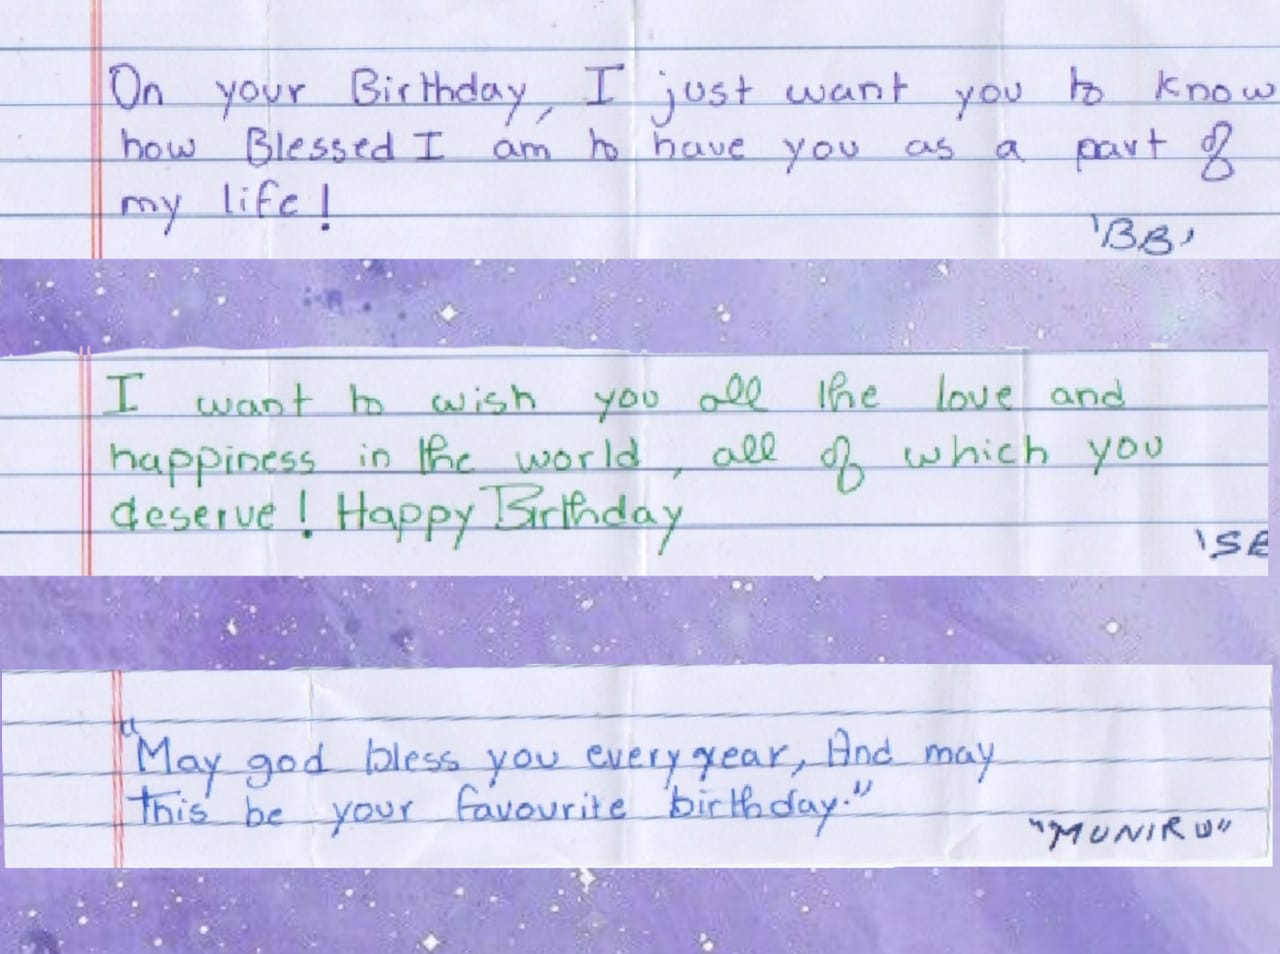 On your Birthday, I just want you to know
how Blessed I am to have you as a part of
my life!
'BB'
I want to wish you all the love and
happiness in the world, all of which you
deserve! Happy Birthday
'SE
"May god bless you every year, And may
this be your favourite birthday."
"MUNIRU"